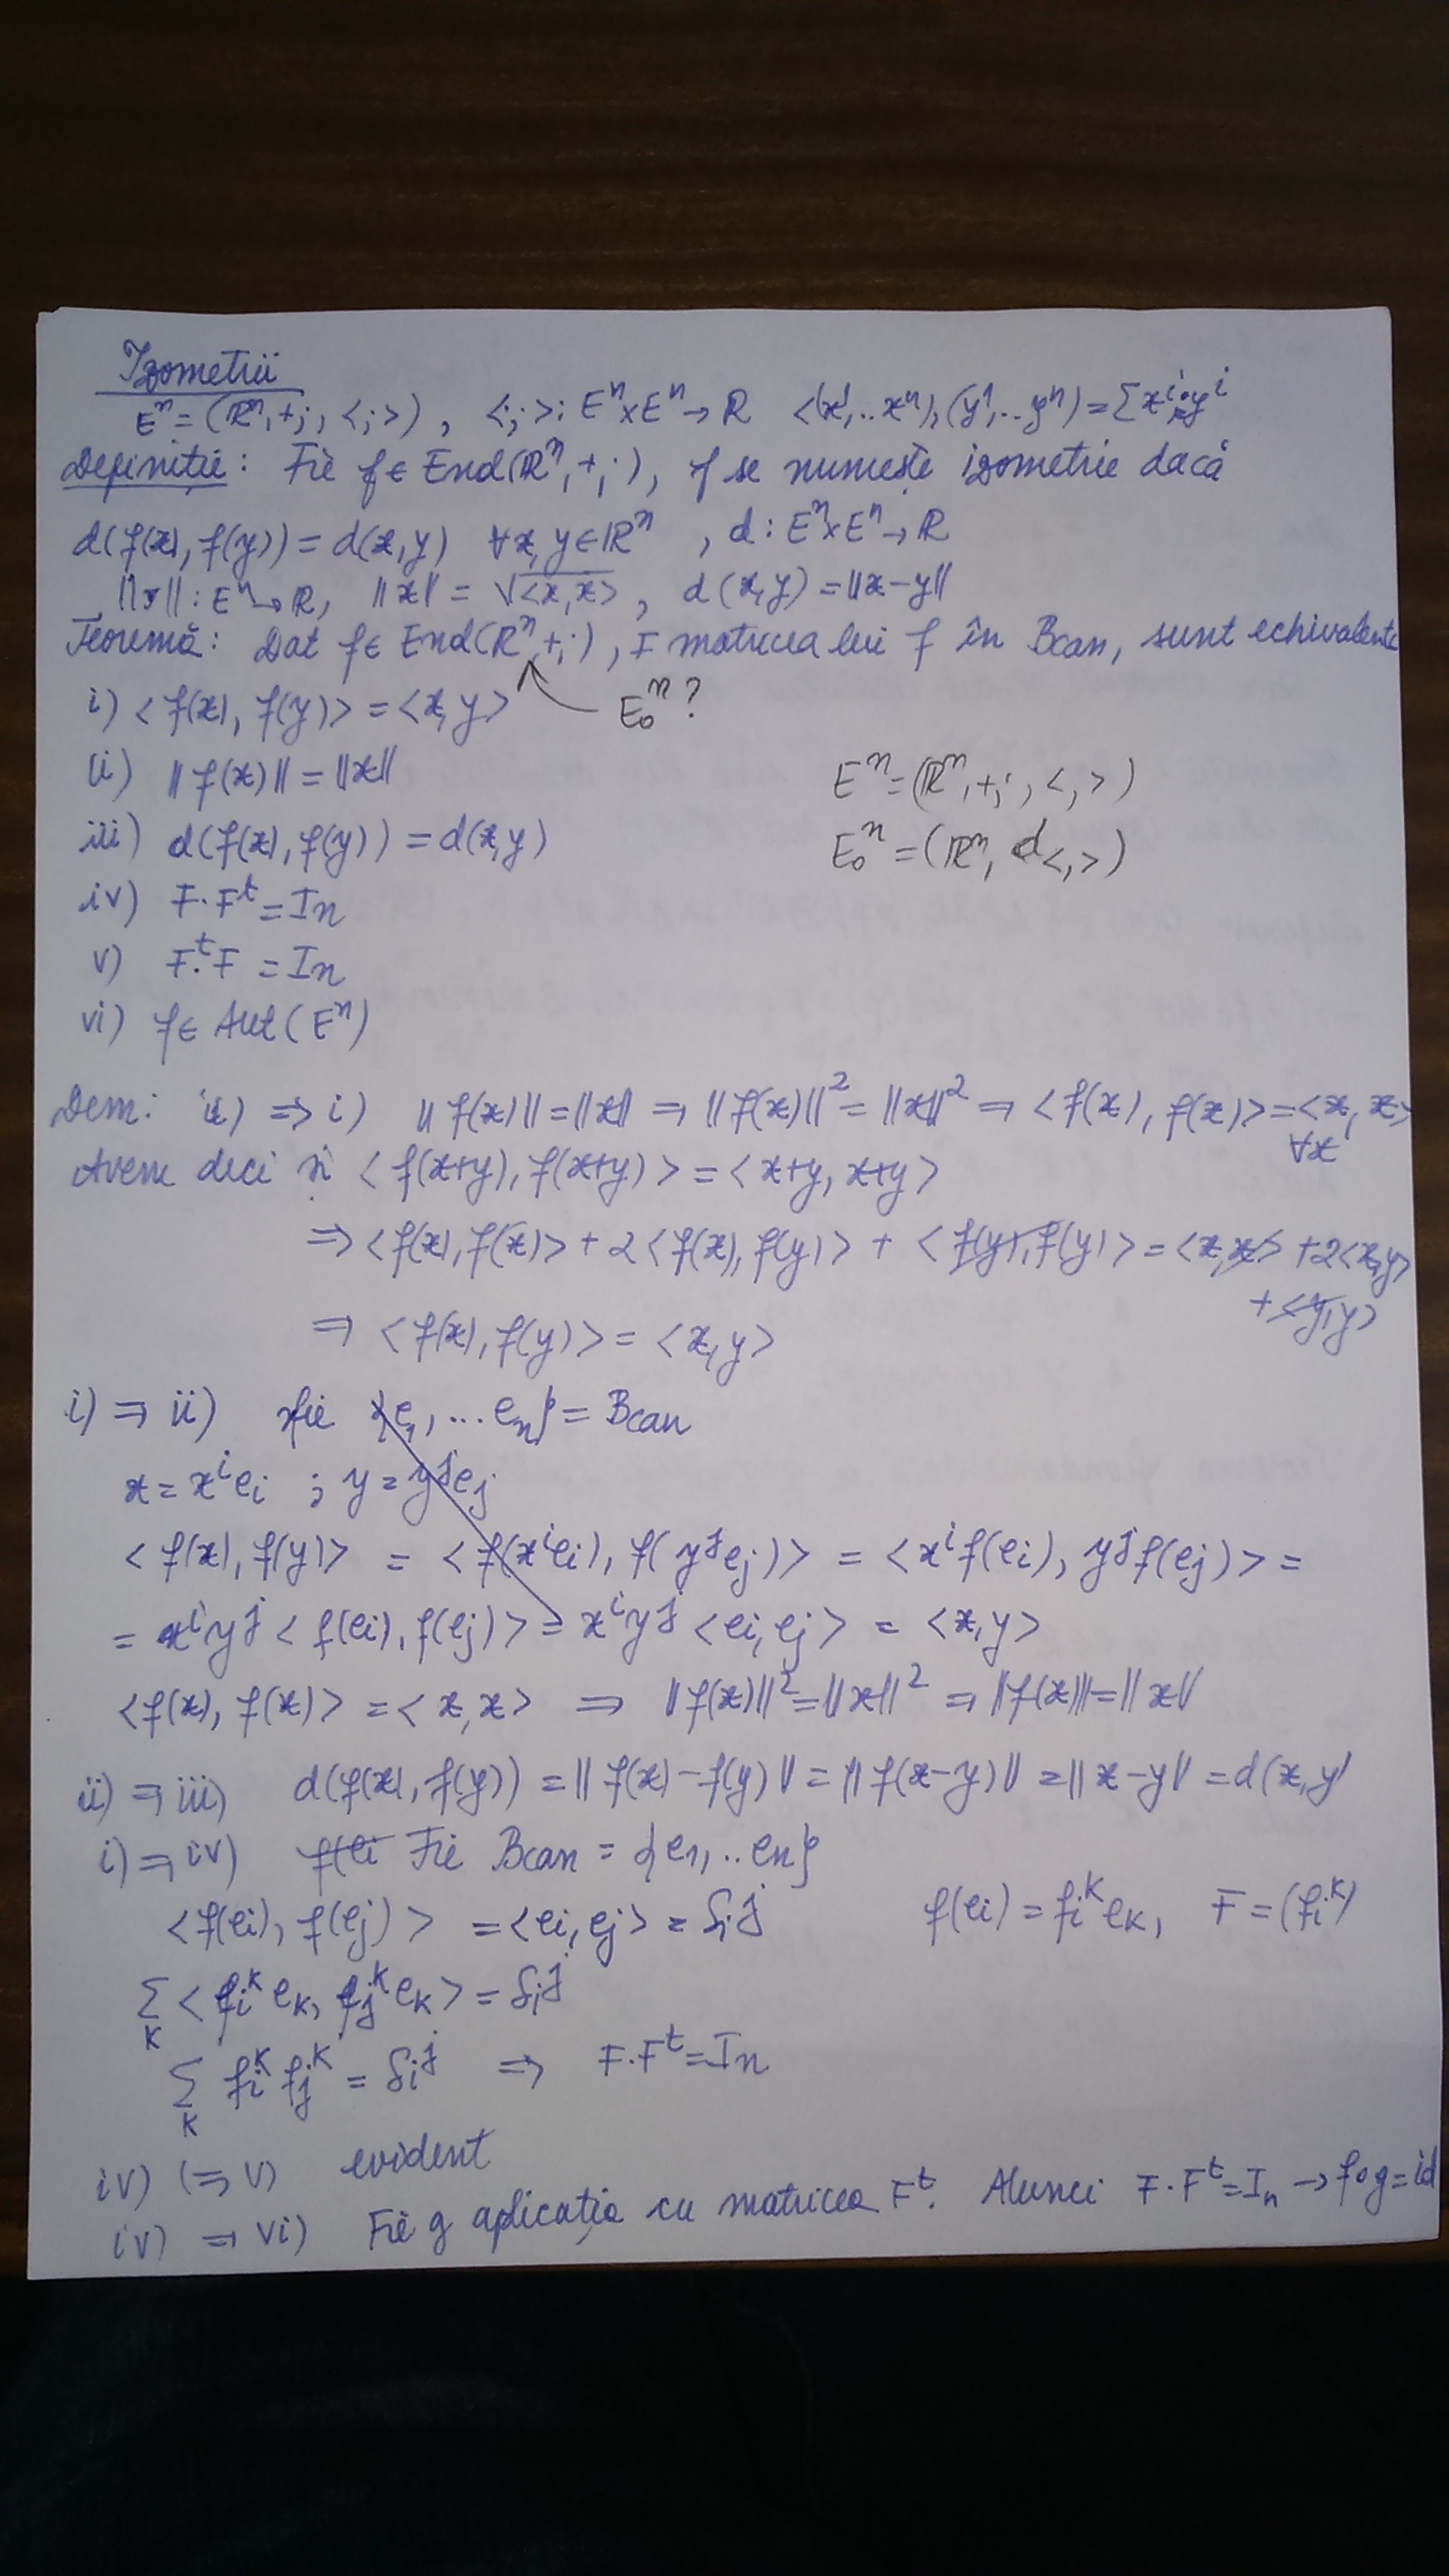 Izometrii
Eⁿ = (ℝⁿ, +, ·, <,>) , <;>: Eⁿ×Eⁿ → ℝ <(x¹,..xⁿ),(y¹,..yⁿ) = ∑xⁱ·yⁱ
Definiție: Fie f ∈ End(ℝⁿ, +, ·), f se numește izometrie dacă
d(f(x), f(y)) = d(x,y) ∀x,y∈ℝⁿ , d: Eⁿ×Eⁿ → ℝ
: Eⁿ → ℝ, ||x|| = √<x,x> , d(x,y) = ||x-y||
Teoremă: Dat f∈ End(ℝⁿ,+,·), F matricea lui f în Bcan, sunt echivalente
i) <f(x), f(y)> = <x,y> E₀ⁿ ?
ii) ||f(x)|| = ||x|| Eⁿ = (ℝⁿ,+,·,<,>)
iii) d(f(x), f(y)) = d(x,y) E₀ⁿ = (ℝⁿ, d<,>)
iv) F·Fᵗ = In
v) Fᵗ·F = In
vi) f∈ Aut(Eⁿ)
Dem: ii) ⇒ i) ||f(x)|| = ||x|| ⇒ ||f(x)||² = ||x||² ⇒ <f(x), f(x)> = <x, x>
∀x
Avem deci și <f(x+y), f(x+y)> = <x+y, x+y>
⇒ <f(x), f(x)> + 2<f(x), f(y)> + <f(y), f(y)> = <x,x> + 2<x,y>
+ <y,y>
⇒ <f(x), f(y)> = <x,y>
i) ⇒ ii) fie {e₁, ... eₙ} = Bcan
x = xⁱeᵢ ; y = yʲeⱼ
<f(x), f(y)> = <f(xⁱeᵢ), f(yʲeⱼ)> = <xⁱf(eᵢ), yʲf(eⱼ)> =
= xⁱyʲ <f(eᵢ), f(eⱼ)> = xⁱyʲ <eᵢ,eⱼ> = <x,y>
<f(x), f(x)> = <x,x> ⇒ ||f(x)||² = ||x||² ⇒ ||f(x)|| = ||x||
ii) ⇒ iii) d(f(x), f(y)) = ||f(x)-f(y)|| = ||f(x-y)|| = ||x-y|| = d(x,y)
i) ⇒ iv) f(ei Fie Bcan = {e1,..en}
<f(ei), f(ej)> = <ei,ej> = δᵢʲ f(ei) = fᵢᵏeₖ, F = (fᵢᵏ)
∑ₖ <fᵢᵏeₖ, fⱼᵏeₖ> = δᵢʲ
∑ₖ fᵢᵏ fⱼᵏ = δᵢʲ ⇒ F·Fᵗ = In
iv) (⇒ v) evident
iv) ⇒ vi) Fie g aplicația cu matricea Fᵗ. Atunci F·Fᵗ = Iₙ → f∘g = id